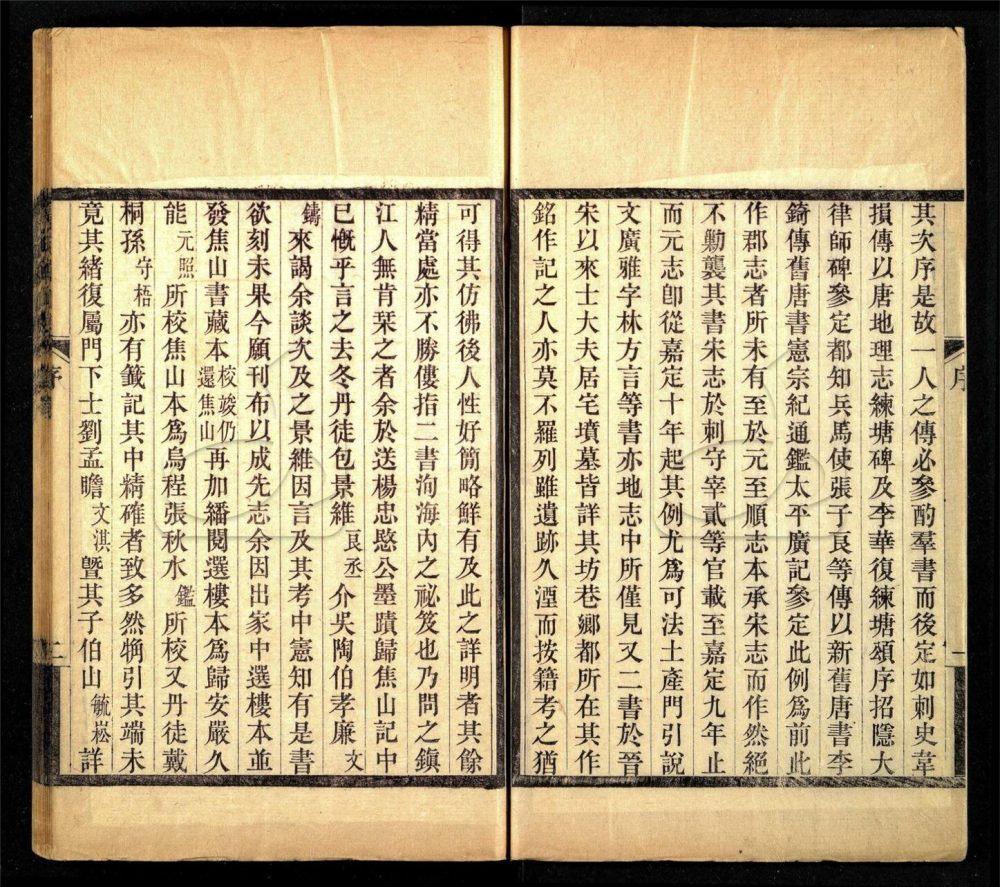 其次序是故一人之傳必參酌羣書而後定如刺史韋
損傳以唐地理志練塘碑及李華復練塘頌序招隱大
律師碑參定都知兵馬使張子良等傳以新舊唐書李
錡傳舊唐書憲宗紀通鑑太平廣記參定此例爲前此
作郡志者所未有至於元至順志本承宋志而作然絕
不勦襲其書宋志於刺守宰貳等官載至嘉定九年止
而元志卽從嘉定十年起其例尤爲可法土產門引說
文廣雅字林方言等書亦地志中所僅見又二書於晉
宋以來士大夫居宅墳墓皆詳其坊巷鄉都所在其作
銘作記之人亦莫不羅列雖遺跡久湮而按籍考之猶
序
一
可得其仿彿後人性好簡略鮮有及此之詳明者其餘
精當處亦不勝僂指二書洵海內之祕笈也乃問之鎭
江人無肯栞之者余於送楊忠愍公墨蹟歸焦山記中
已慨乎言之去冬丹徒包景維良丞介吳陶伯孝廉文
鑄來謁余談次及之景維因言及其考中憲知有是書
欲刻未果今願刊布以成先志余因出家中選樓本並
發焦山書藏本校竣仍還焦山再加繙閱選樓本爲歸安嚴久
能元照所校焦山本爲烏程張秋水鑑所校又丹徒戴
桐孫守梧亦有籤記其中精確者致多然犓引其端未
竟其緒復屬門下士劉孟瞻文淇曁其子伯山毓崧詳
序
二